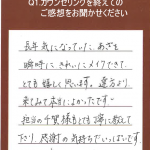 Q1.カウンセリングを終えての
ご感想をお聞かせください
長年気になっていた、あざを
瞬時にきれいにメイクできて、
とても嬉しく思います。遠方より
来てみて本当によかったです。
担当の千葉様もとても丁寧に教えて
下り、感謝の気持ちでいっぱいです。